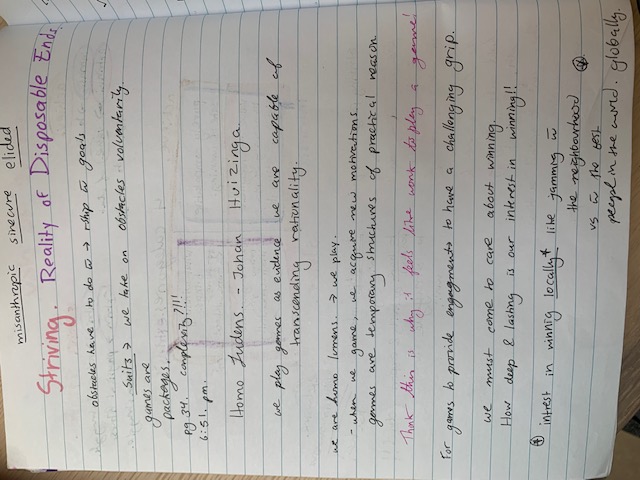 misanthropic sinecure elided
Striving. Reality of Disposable Ends.
obstacles have to do w̄ → rship w̄ goals
Suits → we take on obstacles voluntarily.
games are
packages.
pg 34. complexity?!!!
6:51. pm.
Homo Ludens. - Johan Huizinga.
we play games as evidence we are capable of
transcending rationality.
we are homo lumens. → we play.
- when we game, we acquire new motivations
games are temporary structures of practical reason
Think this is why it feels like work to play a game!
For games to provide engagments to have a challenging grip.
we must come to care about winning.
How deep & lasting is our interest in winning!!
* intrest in winnig locally* like jamming w̄
the neighbourhood
vs w̄ the best
peopl in the world. globally.